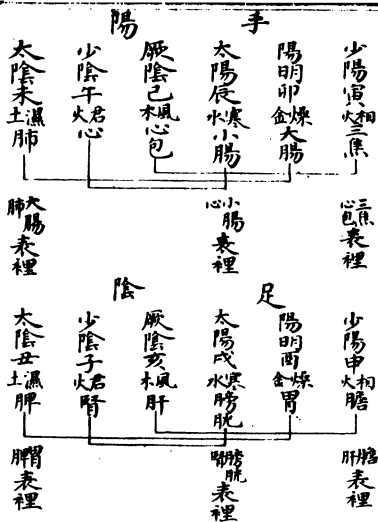 手
陽
少陽寅相火三焦
陽明卯燥金大腸
太陽辰寒水小腸
厥陰巳風木心包
少陰午君火心
太陰未濕土肺
三焦心包表裡
小腸心表裡
大腸肺表裡
足
陰
少陽申相火膽
陽明酉燥金胃
太陽戌寒水膀胱
厥陰亥風木肝
少陰子君火腎
太陰丑濕土脾
膽肝表裡
膀胱表裡
胃脾表裡